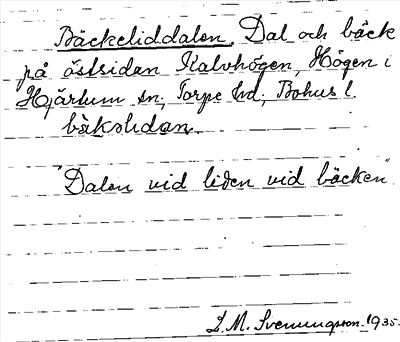 Bäckeliddalen. Dal och bäck
på östsidan Kalvhögen, Högen i
Hjärtum sn; Torpe hd, Bohus l.
bäkslidan.
"Dalen vid liden vid bäcken"
S. M. Svenungsson. 1935.